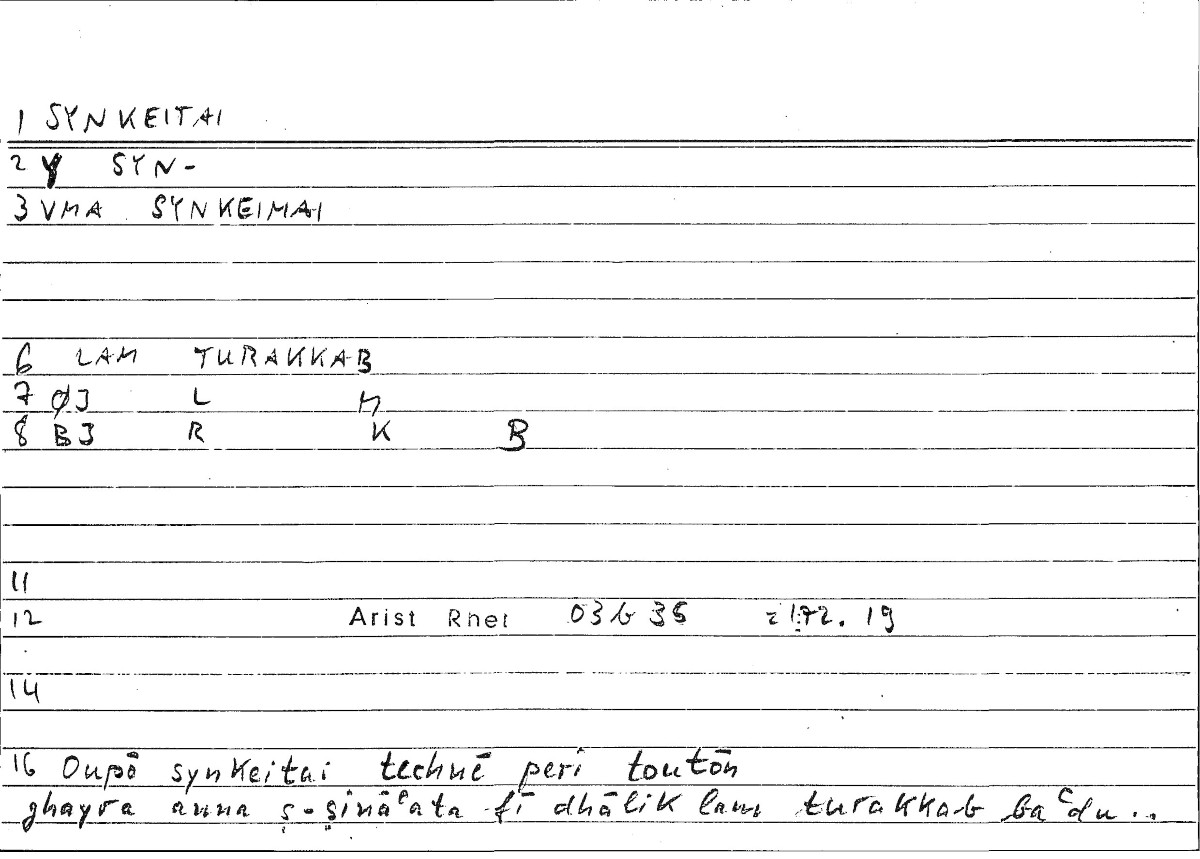 1 SYNKEITAI
2 Y SYN-
3 VMA SYNKEIMAI
6 LAM TURAKKAB
7 ØJ L M
8 BJ R K B
11
12 Arist Rhet 03b 36 = 172. 19
14
16 Oupō synkeitai technē peri toutōn
ghayra anna ṣ-ṣināʿata fī dhālik lam turakkab baʿdu..